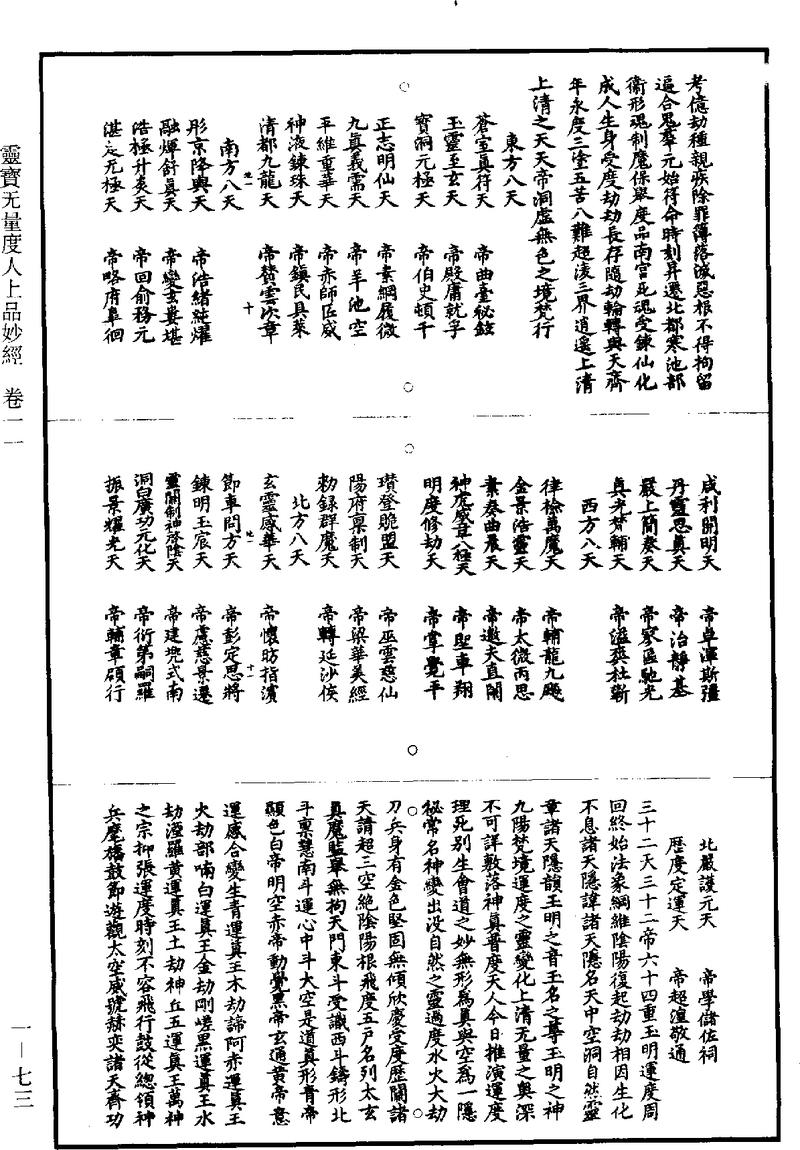 靈寶无量度人上品妙經 卷一一
一—七三
考億劫種親疾除罪簿落滅惡根不得拘留
逼合鬼羣元始符命時刻昇遷北都寒池部
衞形魂制魔保舉度品南宮死魂受鍊仙化
成人生身受度劫劫長存隨劫輪轉與天齊
年永度三塗五苦八難超淩三界逍遙上清
上清之天天帝洞虛無色之境梵行
東方八天
蒼室真符天 帝曲臺祕鉉
玉靈至玄天 帝殿庸就孚
寶洞元極天 帝伯史頓千
正志明仙天 帝素綱履微
九真義霈天 帝羊池空
平維重華天 帝赤師匹威
神液鍊珠天 帝鎮民具萊
清都九龍天 帝賛雲次章
南方八天
彤京降輿天 帝浩緒純燿
融煇舒真天 帝變玄真堪
浩極升炎天 帝回俞務元
湛定无極天 帝略府阜徊
成利開明天 帝卓渾斯彊
丹靈思真天 帝治靜基
嚴上簡奏天 帝察區馳光
真光梵輔天 帝溢奕杜斬
西方八天
律檢萬魔天 帝輔龍九飈
金景浩靈天 帝太微丙思
素奏曲晨天 帝遨夫直閑
神虎威章八極天 帝堅車翔
明度修劫天 帝掌覺平
瓚登貤盟天 帝巫雲懸仙
陽府稟制天 帝梁華美經
勑録群魔天 帝轉延沙俟
北方八天
玄靈感華天 帝懷昉指濱
節車問方天 帝彭定思將
鍊明玉宸天 帝慮慈景遷
靈關制神啓陰天 帝建兜式南
洞白廣功元化天 帝衍第嗣羅
振景耀光天 帝輔章碩行
北嚴護元天 帝學儲佐祠
歷度定運天 帝超澶敬通
三十二天三十二帝六十四重玉明運度周
回終始法象綱維陰陽復起劫劫相因生化
不息諸天隱諱諸天隱名天中空洞自然靈
章諸天隱韻玉明之音玉名之尊玉明之神
九陽梵境運度之靈變化上清无量之奧深
不可詳敷落神真普度天人今日推演運度
理死別生會道之妙無形爲真與空爲一隱
祕常名神變出没自然之靈過度水火大劫
刀兵身有金色堅固無傾欣慶受度歷關諸
天請超三空絶陰陽根飛度五戸名列太玄
真魔監舉無拘天門東斗受識西斗鑄形北
斗稟慧南斗運心中斗大空是道真形青帝
顯色白帝明空赤帝動覺黑帝玄通黄帝意
運感合變生青運真王木劫諦阿赤運真王
火劫部喃白運真王金劫剛嵯黑運真王水
劫溼羅黄運真王土劫神丘五運真王萬神
之宗抑張運度時刻不容飛行鼓從總領神
兵麾幡鼓節遊觀太空威號赫奕諸天齊功